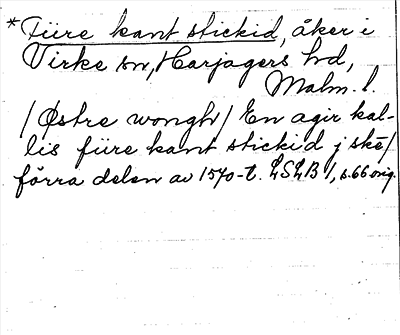 *Fiire kant stickid, åker i
Virke sn, Harjagers hd,
Malm. l.
/Østre wongh/ En agir kal-
lis fiire kant stickid j skē/
förra delen av 1570-t. LSLB 1, s. 66 orig.